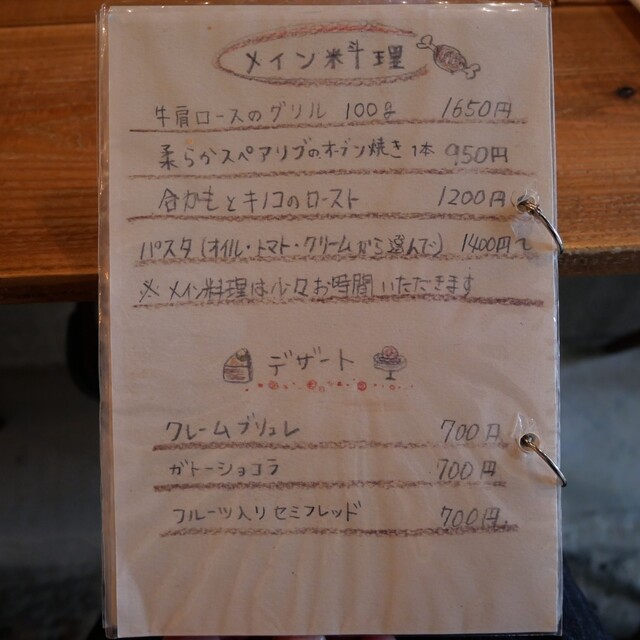 メイン料理
牛肩ロースのグリル 100g 1650円
柔らかスペアリブのオーブン焼き 1本 950円
合かもとキノコのロースト 1200円
パスタ(オイル・トマト・クリームから選んで) 1400円~
※ メイン料理は少々お時間いただきます
デザート
クレームブリュレ 700円
ガトーショコラ 700円
フルーツ入りセミフレッド 700円